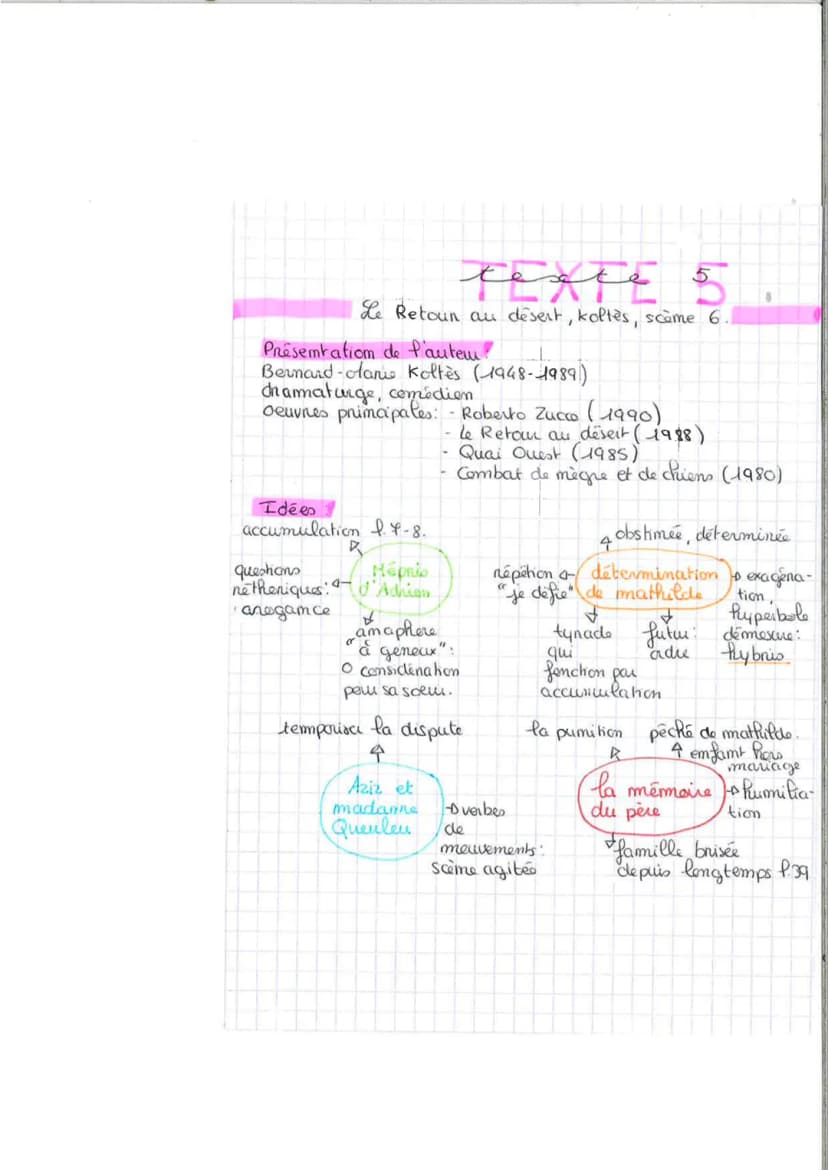 TEXTE 5
texte 5
Le Retour au désert, Koltès, scème 6.
Présentation de l'auteur:
Bernard-Marie Koltès (1948-1989)
dramaturge, comédien
oeuvres principales: - Roberto Zucco (1990)
- Le Retour au désert (1988)
- Quai Ouest (1985)
- Combat de nègre et de chiens (1980)
Idées:
accumulation l.7-8.
questions
réthoriques:
arrogance
Mépris
d'Adrien
anaphore
"à genoux":
0 considération
pour sa soeur.
obstinée, déterminée
répétion
"je défie"
détermination
de mathilde
exagéra-
tion,
hyperbole
démesure:
hybris
tyrade
qui
fonction par
accumulation
futur:
ordre
temporiser la dispute
Aziz et
madame
Queuleu
verbes
de
mouvements:
scène agitée
la punition
péché de mathilde.
enfant hors
mariage
la mémoire
du père
humilia-
tion
famille brisée
depuis longtemps l.39